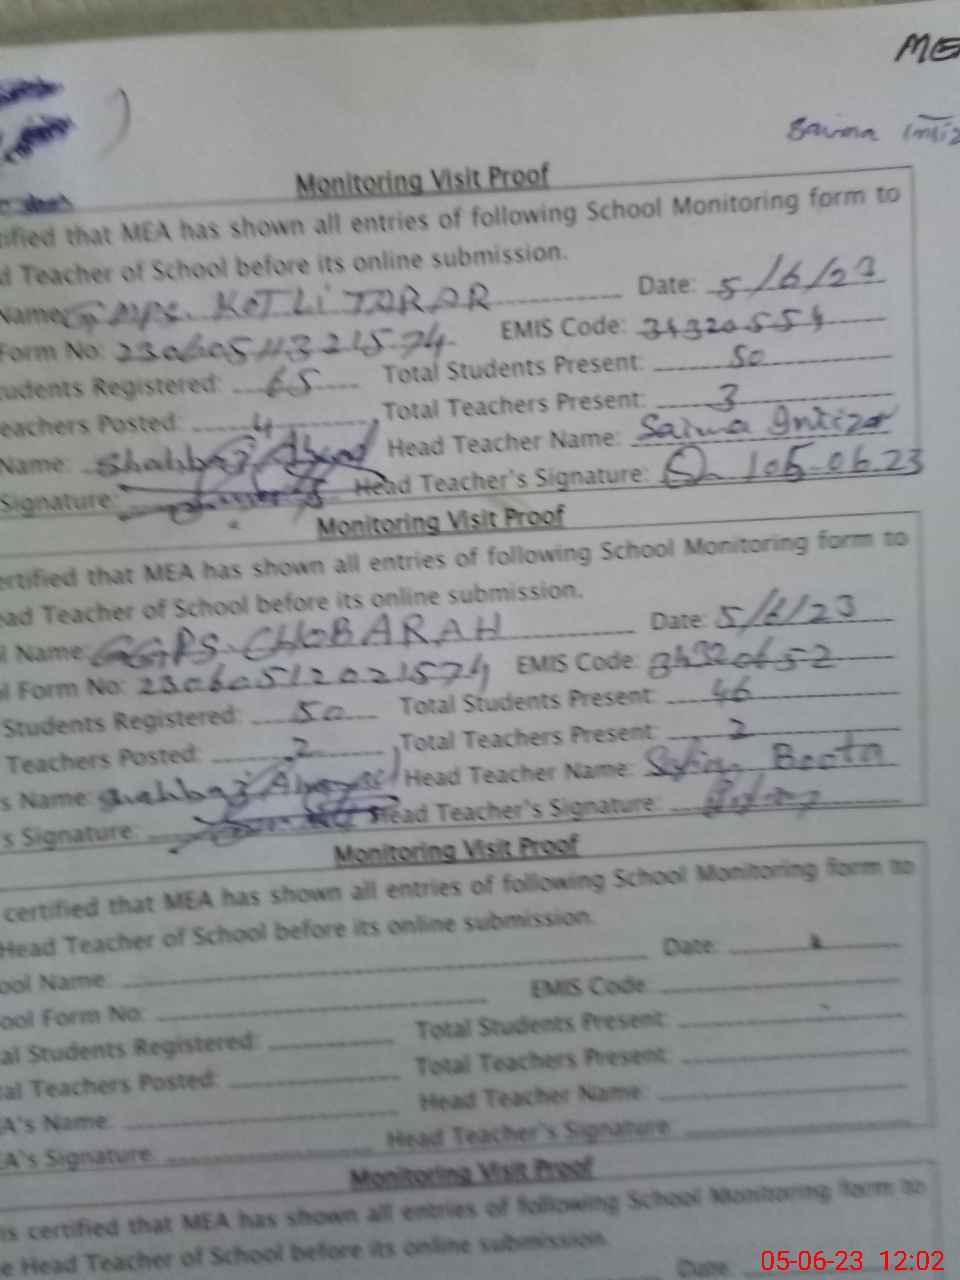 ME
Saima
Monitoring Visit Proof
tified that MEA has shown all entries of following School Monitoring form to
d Teacher of School before its online submission.
Name: GMPS. KOTLI TARAR Date: 5/6/23
Form No: EMIS Code: 34320554
tudents Registered: 65 Total Students Present: 50
eachers Posted: 4 Total Teachers Present: 3
Name: Shahbaz Ahmad Head Teacher Name: Saima Intizar
Signature: Head Teacher's Signature: 05-06-23
Monitoring Visit Proof
ertified that MEA has shown all entries of following School Monitoring form to
ead Teacher of School before its online submission.
l Name: GGPS. CHOBARAH Date: 5/6/23
l Form No: 23060512021574 EMIS Code: 34320652
Students Registered: 50 Total Students Present: 46
Teachers Posted: 2 Total Teachers Present: 2
s Name: Shahbaz Ahmad Head Teacher Name: Boota
s Signature: Head Teacher's Signature:
Monitoring Visit Proof
certified that MEA has shown all entries of following School Monitoring form to
Head Teacher of School before its online submission.
ool Name: Date:
ool Form No: EMIS Code:
al Students Registered: Total Students Present:
al Teachers Posted: Total Teachers Present:
A's Name: Head Teacher Name:
A's Signature: Head Teacher's Signature:
Monitoring Visit Proof
is certified that MEA has shown all entries of following School Monitoring form to
e Head Teacher of School before its online submission.
Date:
05-06-23 12:02